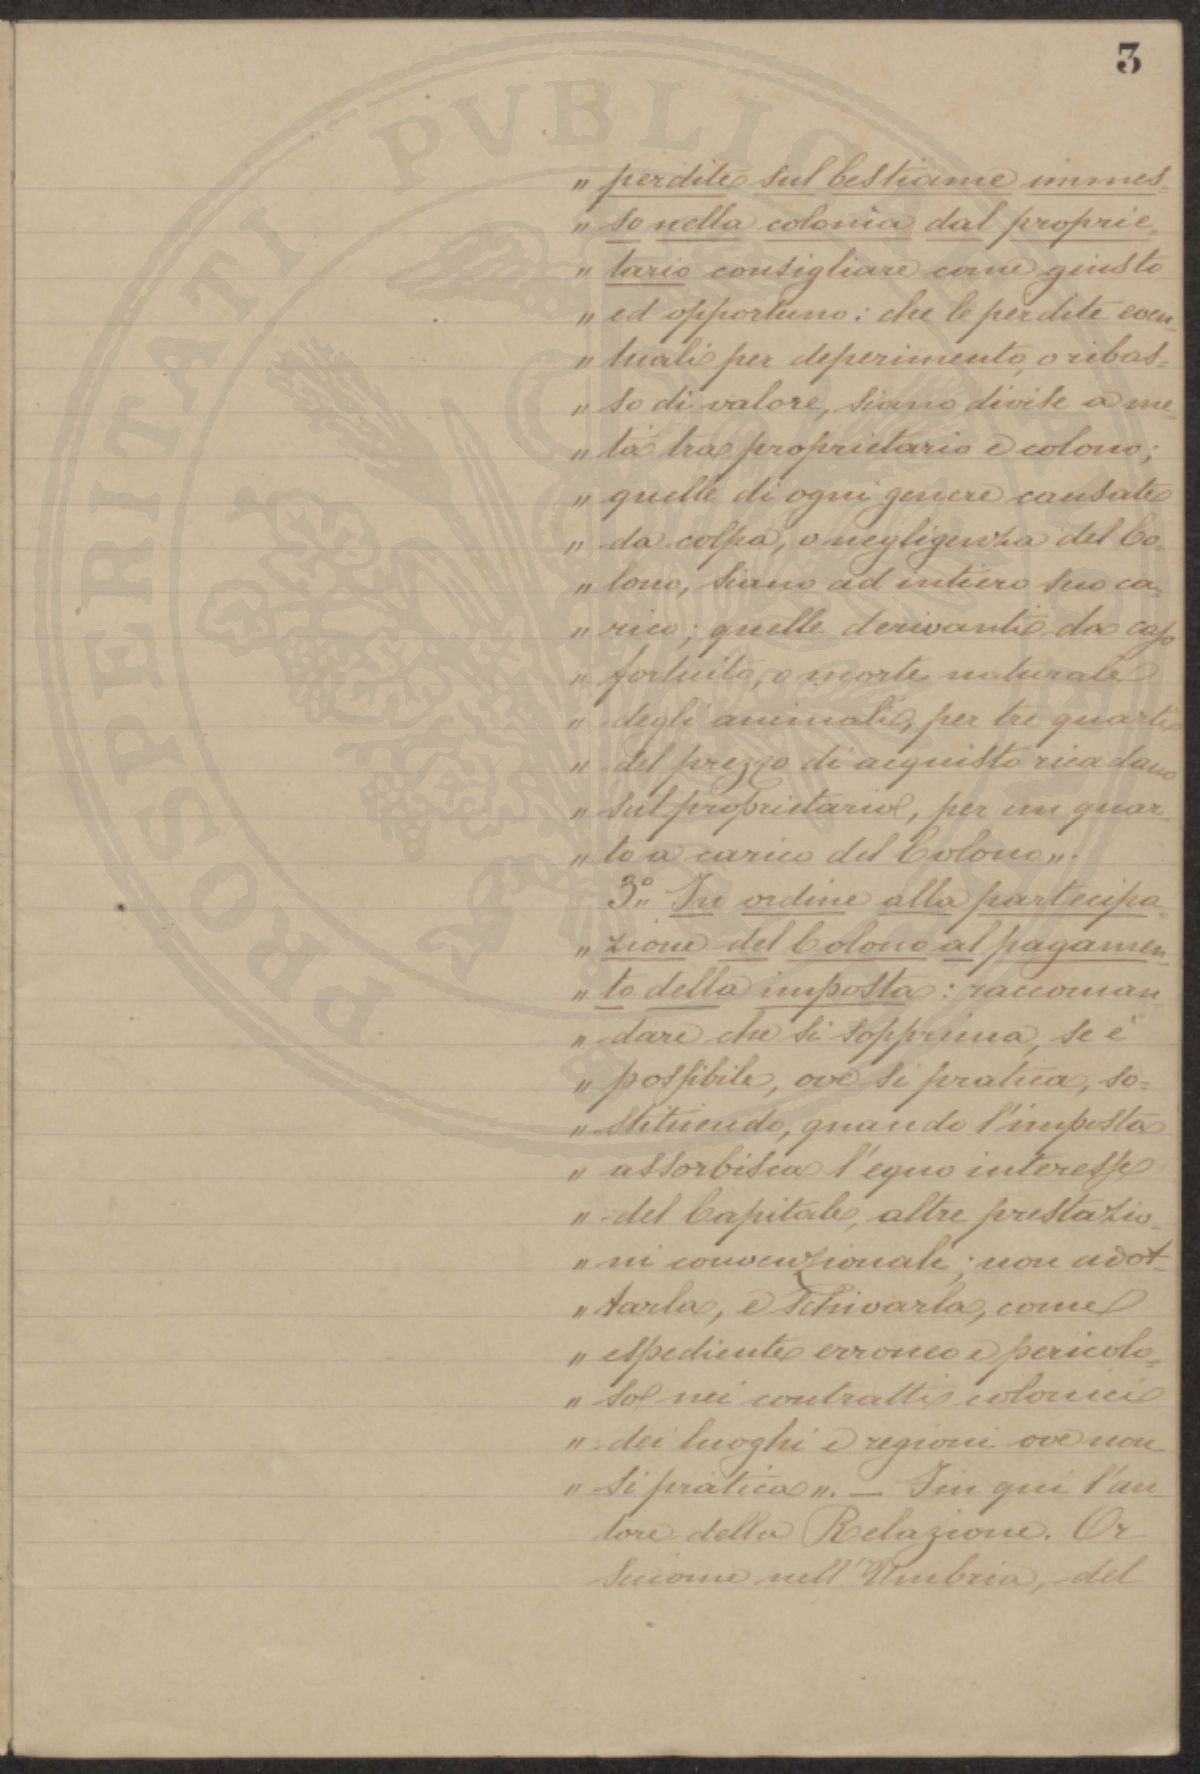 3
„ perdite sul bestiame immes-
„ so nella colonia dal proprie-
„ tario consigliare come giusto
„ ed opportuno: che le perdite even-
„ tuali per deperimento, o ribas-
„ so di valore, siano divise a me-
„ tà tra proprietario e colono;
„ quelle di ogni genere causate
„ da colpa, o negligenza del Co-
„ lono, siano ad intiero suo ca-
„ rico; quelle derivanti da caso
„ fortuito, o morte naturale
„ degli animali, per tre quarti
„ del prezzo di acquisto ricadano
„ sul proprietario, per un quar-
„ to a carico del Colono„.
3.° In ordine alla partecipa-
„ zione del Colono al pagamen-
„ to della imposta: raccoman-
„ dare che si sopprima, se è
„ possibile, ove si pratica, so-
„ stituendo, quando l'imposta
„ assorbisca l'equo interesse
„ del Capitale, altre prestazio-
„ ni convenzionali; non adot-
„ tarla, e schivarla, come
„ espediente erroneo e pericolo-
„ so nei contratti colonici
„ dei luoghi e regioni ove non
„ si pratica„. — Fin qui l'au-
tore della Relazione. Or
siccome nell'Umbria, del
PROSPERITATI PVBLICAE